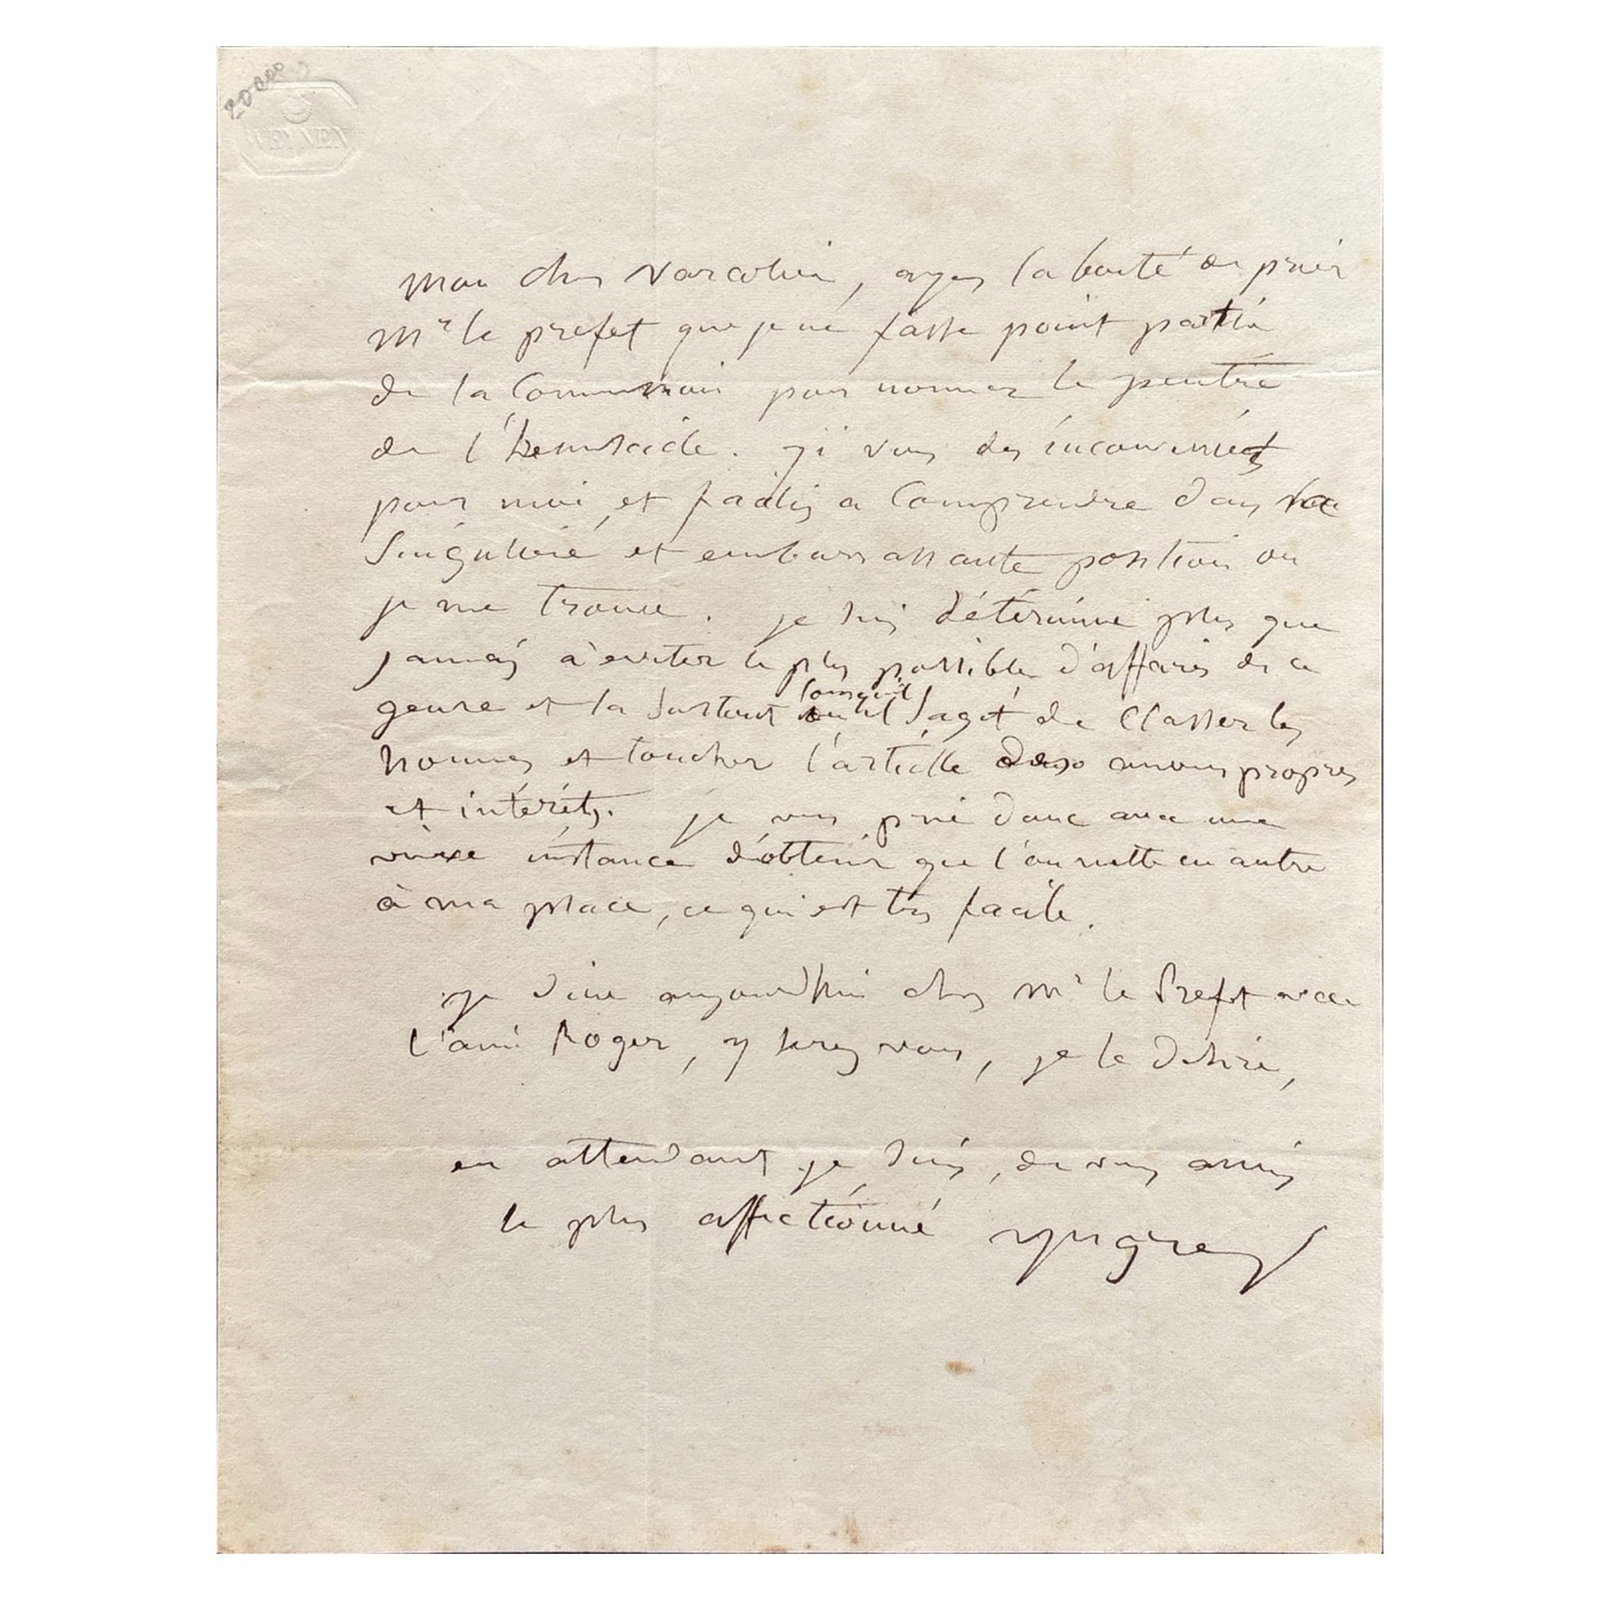 20000
WEYNEN
Mon cher Varcolier, ayez la bonté de prier
Mr le prefet que je ne fasse point partie
de la Commission pour nommer le peintre
de l'hemicicle. j'i vois des inconvenients
pour moi, et faciles a Comprendre dans la
Singulière et embarrassante position ou
je me trouve. je suis détérminé plus que
jamais à eviter le plus possible d'affaires de ce
genre et la surtout lorsqu'il s'agit de Classer les
hommes et toucher l'article des amours propres
et intérêts. je vous prie donc avec une
vive instance d'obtenir que l'on mette un autre
à ma place, ce qui est très facile.
je dine aujourdhui chez Mr le Prefet avec
l'ami Roger, y serez vous, je le desire,
en attendant je suis, de vos amis
le plus affectionné Ingres